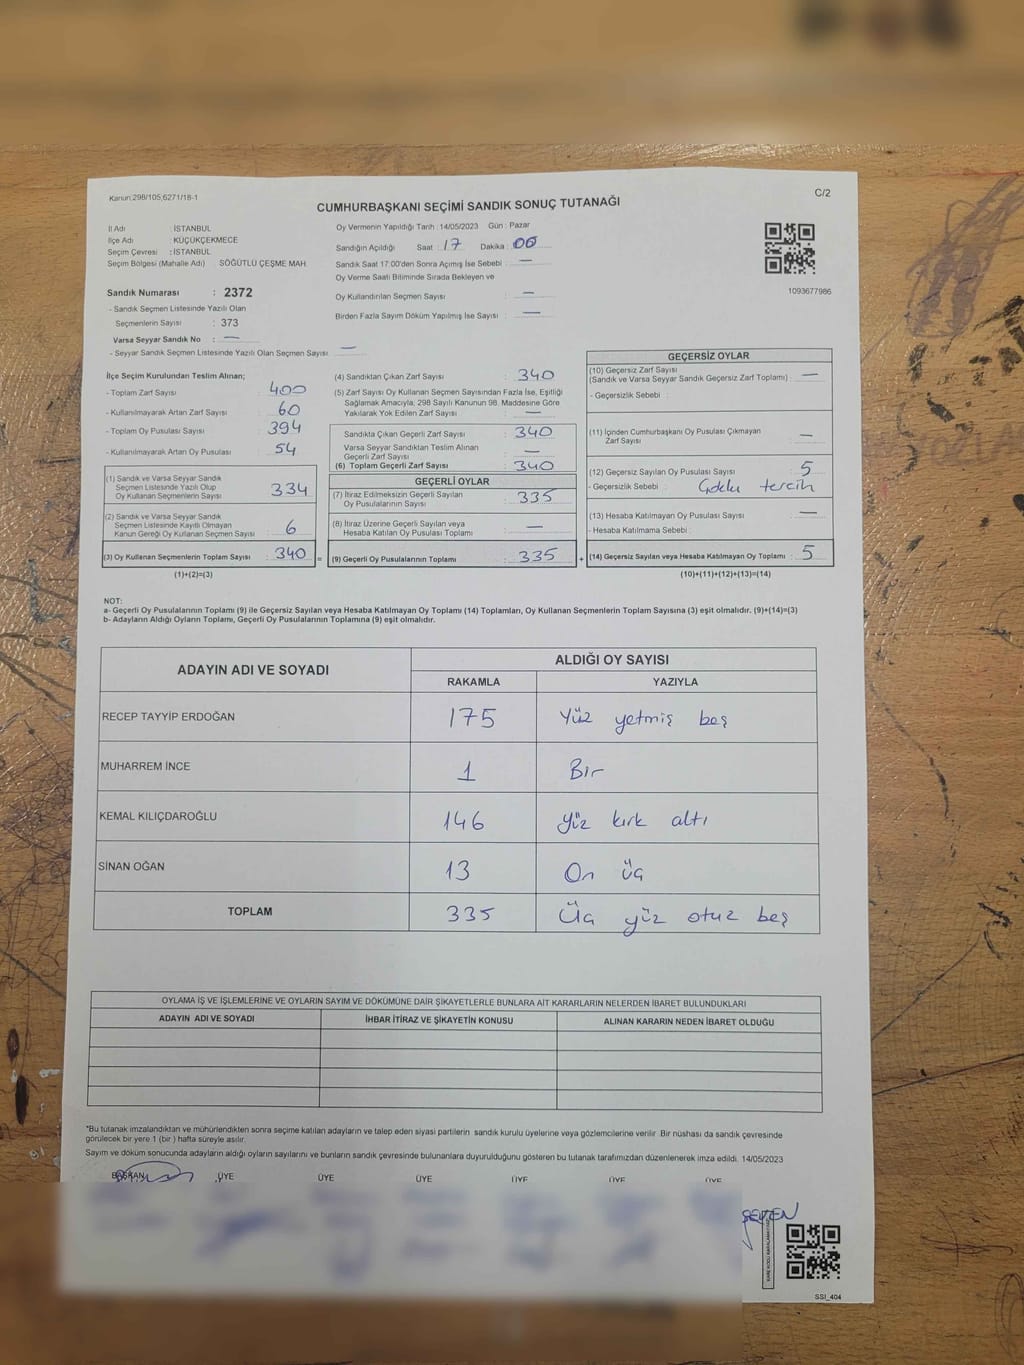 Kanun:298/105,6271/18-1
C/2
CUMHURBAŞKANI SEÇİMİ SANDIK SONUÇ TUTANAĞI
İl Adı : İSTANBUL
İlçe Adı : KÜÇÜKÇEKMECE
Seçim Çevresi : İSTANBUL
Seçim Bölgesi (Mahalle Adı) SÖĞÜTLÜ ÇEŞME MAH.
Sandık Numarası : 2372
- Sandık Seçmen Listesinde Yazılı Olan
Seçmenlerin Sayısı : 373
Varsa Seyyar Sandık No : —
- Seyyar Sandık Seçmen Listesinde Yazılı Olan Seçmen Sayısı : —
Oy Vermenin Yapıldığı Tarih :14/05/2023 Gün : Pazar
Sandığın Açıldığı Saat : 17 Dakika : 00
Sandık Saat 17:00'den Sonra Açımış İse Sebebi : —
Oy Verme Saati Bitiminde Sırada Bekleyen ve
Oy Kullandırılan Seçmen Sayısı : —
Birden Fazla Sayım Döküm Yapılmış İse Sayısı : —
1093677986
İlçe Seçim Kurulundan Teslim Alınan;
- Toplam Zarf Sayısı : 400
- Kullanılmayarak Artan Zarf Sayısı : 60
- Toplam Oy Pusulası Sayısı : 394
- Kullanılmayarak Artan Oy Pusulası : 54
(1) Sandık ve Varsa Seyyar Sandık
Seçmen Listesinde Yazılı Olup
Oy Kullanan Seçmenlerin Sayısı : 334
(2) Sandık ve Varsa Seyyar Sandık
Seçmen Listesinde Kayıtlı Olmayan
Kanun Gereği Oy Kullanan Seçmen Sayısı : 6
(3) Oy Kullanan Seçmenlerin Toplam Sayısı : 340 =
(1)+(2)=(3)
(4) Sandıktan Çıkan Zarf Sayısı : 340
(5) Zarf Sayısı Oy Kullanan Seçmen Sayısından Fazla İse, Eşitliği
Sağlamak Amacıyla, 298 Sayılı Kanunun 98. Maddesine Göre
Yakılarak Yok Edilen Zarf Sayısı : —
Sandıkta Çıkan Geçerli Zarf Sayısı : 340
Varsa Seyyar Sandıktan Teslim Alınan
Geçerli Zarf Sayısı : —
(6) Toplam Geçerli Zarf Sayısı : 340
GEÇERLİ OYLAR
(7) İtiraz Edilmeksizin Geçerli Sayılan
Oy Pusulalarının Sayısı : 335
(8) İtiraz Üzerine Geçerli Sayılan veya
Hesaba Katılan Oy Pusulası Toplamı : —
(9) Geçerli Oy Pusulalarının Toplamı : 335 +
GEÇERSİZ OYLAR
(10) Geçersiz Zarf Sayısı
(Sandık ve Varsa Seyyar Sandık Geçersiz Zarf Toplamı) : —
- Geçersizlik Sebebi :
(11) İçinden Cumhurbaşkanı Oy Pusulası Çıkmayan
Zarf Sayısı : —
(12) Geçersiz Sayılan Oy Pusulası Sayısı : 5
- Geçersizlik Sebebi : Çoklu tercih
(13) Hesaba Katılmayan Oy Pusulası Sayısı : —
- Hesaba Katılmama Sebebi :
(14) Geçersiz Sayılan veya Hesaba Katılmayan Oy Toplamı : 5
(10)+(11)+(12)+(13)=(14)
NOT:
a- Geçerli Oy Pusulalarının Toplamı (9) ile Geçersiz Sayılan veya Hesaba Katılmayan Oy Toplamı (14) Toplamları, Oy Kullanan Seçmenlerin Toplam Sayısına (3) eşit olmalıdır. (9)+(14)=(3)
b- Adayların Aldığı Oyların Toplamı, Geçerli Oy Pusulalarının Toplamına (9) eşit olmalıdır.
ADAYIN ADI VE SOYADI
ALDIĞI OY SAYISI
RAKAMLA YAZIYLA
RECEP TAYYİP ERDOĞAN 175 Yüz yetmiş beş
MUHARREM İNCE 1 Bir
KEMAL KILIÇDAROĞLU 146 Yüz kırk altı
SİNAN OĞAN 13 On üç
TOPLAM 335 Üç yüz otuz beş
OYLAMA İŞ VE İŞLEMLERİNE VE OYLARIN SAYIM VE DÖKÜMÜNE DAİR ŞİKAYETLERLE BUNLARA AİT KARARLARIN NELERDEN İBARET BULUNDUKLARI
ADAYIN ADI VE SOYADI İHBAR İTİRAZ VE ŞİKAYETİN KONUSU ALINAN KARARIN NEDEN İBARET OLDUĞU
*Bu tutanak imzalandıktan ve mühürlendikten sonra seçime katılan adayların ve talep eden siyasi partilerin sandık kurulu üyelerine veya gözlemcilerine verilir. Bir nüshası da sandık çevresinde
görülecek bir yere 1 (bir ) hafta süreyle asılır.
Sayım ve döküm sonucunda adayların aldığı oyların sayılarını ve bunların sandık çevresinde bulunanlara duyurulduğunu gösteren bu tutanak tarafımızdan düzenlenerek imza edildi. 14/05/2023
BAŞKAN ÜYE ÜYE ÜYE ÜYE ÜYE ÜYE
SSI_404